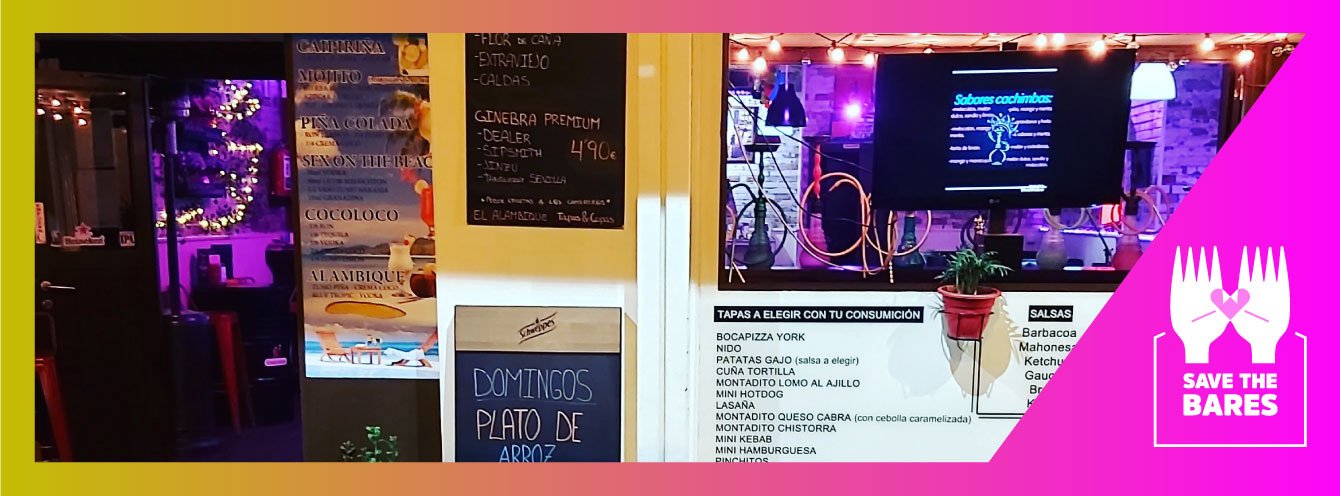 CAIPIRIÑA
MOJITO
PIÑA COLADA
SEX ON THE BEAC
COCOLOCO
1/3 RON
1/3 TEQUILA
1/3 VODKA
ALAMBIQUE
ZUMO PIÑA CREMA COCO
BLUE TROPIC VODKA
Heineken
IPA
-FLOR DE CAÑA
-EXTRAVIEJO
-CALDAS
GINEBRA PREMIUM
-DEALER
-SIPSMITH
4'90€
EL ALAMBIQUE Tapas & Copas
Schweppes
DOMINGOS
PLATO DE
ARROZ
Sabores cachimbas:
LG
TAPAS A ELEGIR CON TU CONSUMICIÓN
BOCAPIZZA YORK
NIDO
PATATAS GAJO (salsa a elegir)
CUÑA TORTILLA
MONTADITO LOMO AL AJILLO
MINI HOTDOG
LASAÑA
MONTADITO QUESO CABRA (con cebolla caramelizada)
MONTADITO CHISTORRA
MINI KEBAB
MINI HAMBURGUESA
PINCHITOS
SALSAS
Barbacoa
Mahonesa
Ketchu
Gauc
Br
K
SAVE THE
BARES